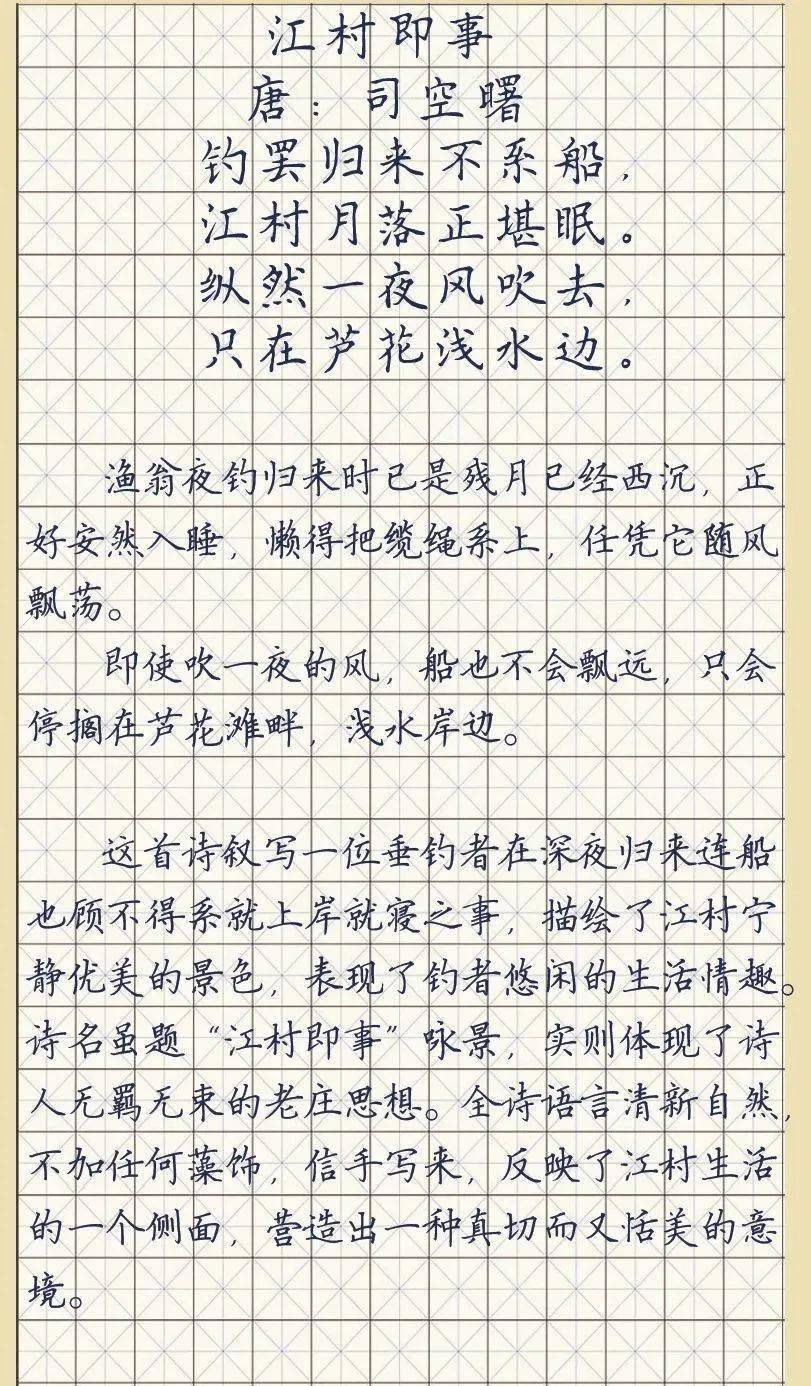 江村即事
唐：司空曙
钓罢归来不系船，
江村月落正堪眠。
纵然一夜风吹去，
只在芦花浅水边。
渔翁夜钓归来时已是残月已经西沉，正
好安然入睡，懒得把缆绳系上，任凭它随风
飘荡。
即使吹一夜的风，船也不会飘远，只会
停搁在芦花滩畔，浅水岸边。
这首诗叙写一位垂钓者在深夜归来连船
也顾不得系就上岸就寝之事，描绘了江村宁
静优美的景色，表现了钓者悠闲的生活情趣。
诗名虽题“江村即事”咏景，实则体现了诗
人无羁无束的老庄思想。全诗语言清新自然，
不加任何藻饰，信手写来，反映了江村生活
的一个侧面，营造出一种真切而又恬美的意
境。